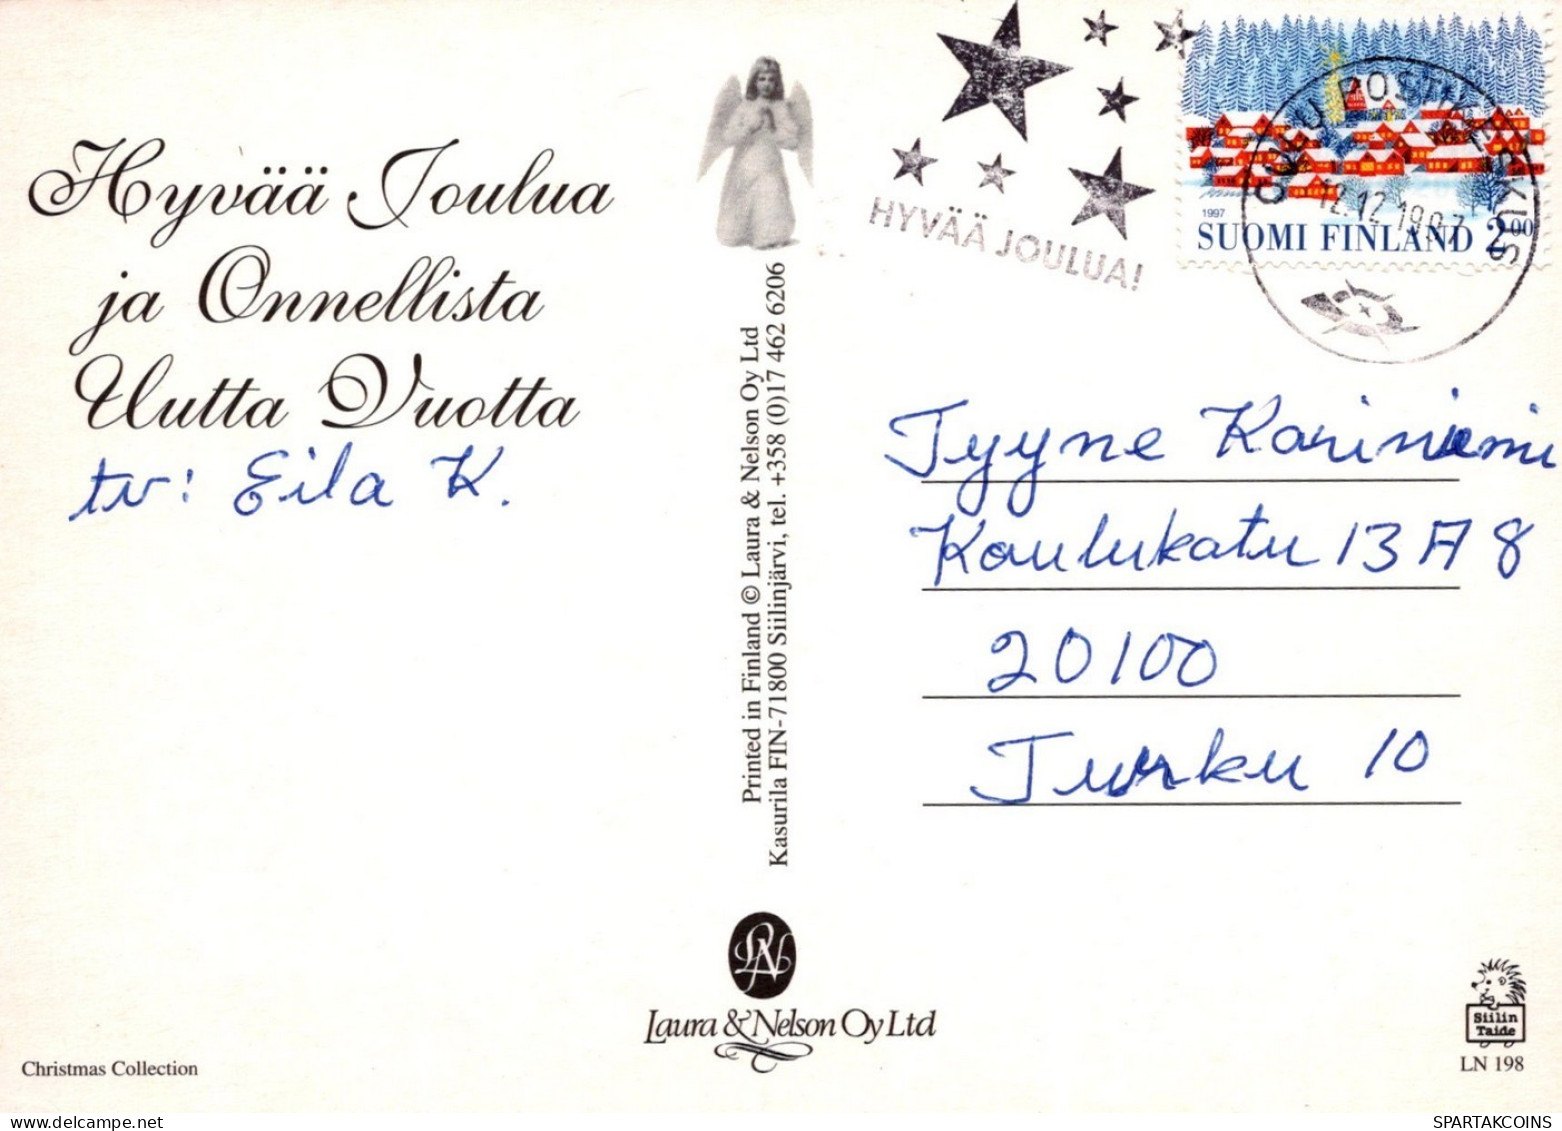 Hyvää Joulua
ja Onnellista
Uutta Vuotta
tv: Eila K.
Printed in Finland © Laura & Nelson Oy Ltd
Kasurila FIN-71800 Siilinjärvi, tel. +358 (0)17 462 6206
HYVÄÄ JOULUA!
1997
SUOMI FINLAND 2.00
OULU POSTIKESKUS
12.12.1997
Tyyne Kariniemi
Koulukatu 13 A 8
20100
Turku 10
LN
Laura & Nelson Oy Ltd
Christmas Collection
Siilin
Taide
LN 198
SPARTAKCOINS